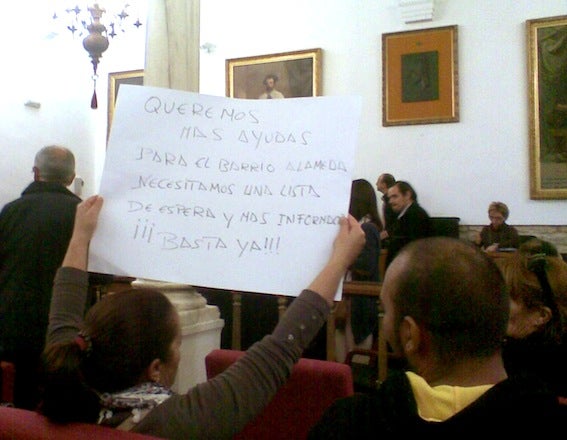 QUEREMOS
MAS AYUDAS
PARA EL BARRIO ALAMEDA
NECESITAMOS UNA LISTA
DE ESPERA Y MAS INFORMACION
¡¡¡BASTA YA!!!